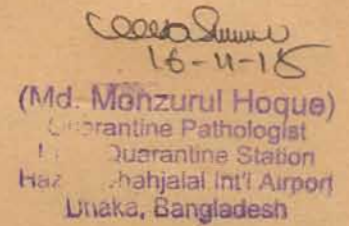 16-11-15
(Md. Monzurul Hoque)
Quarantine Pathologist
Quarantine Station
Hazrat Shahjalal Int'l Airport
Dhaka, Bangladesh